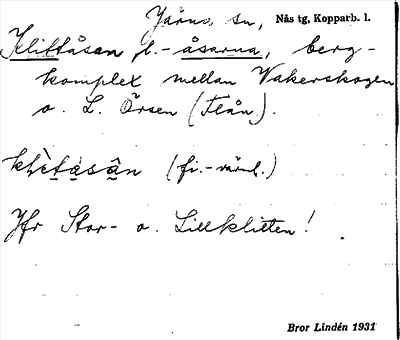 Järna sn, Nås tg, Kopparb. l.
Klittåsen l. -åsarna, berg-
komplex mellan Vakerskogen
o. L. Örsen (Flån).
(fi.-värml.)
Jfr Stor- o. Lillklitten!
Bror Lindén 1931